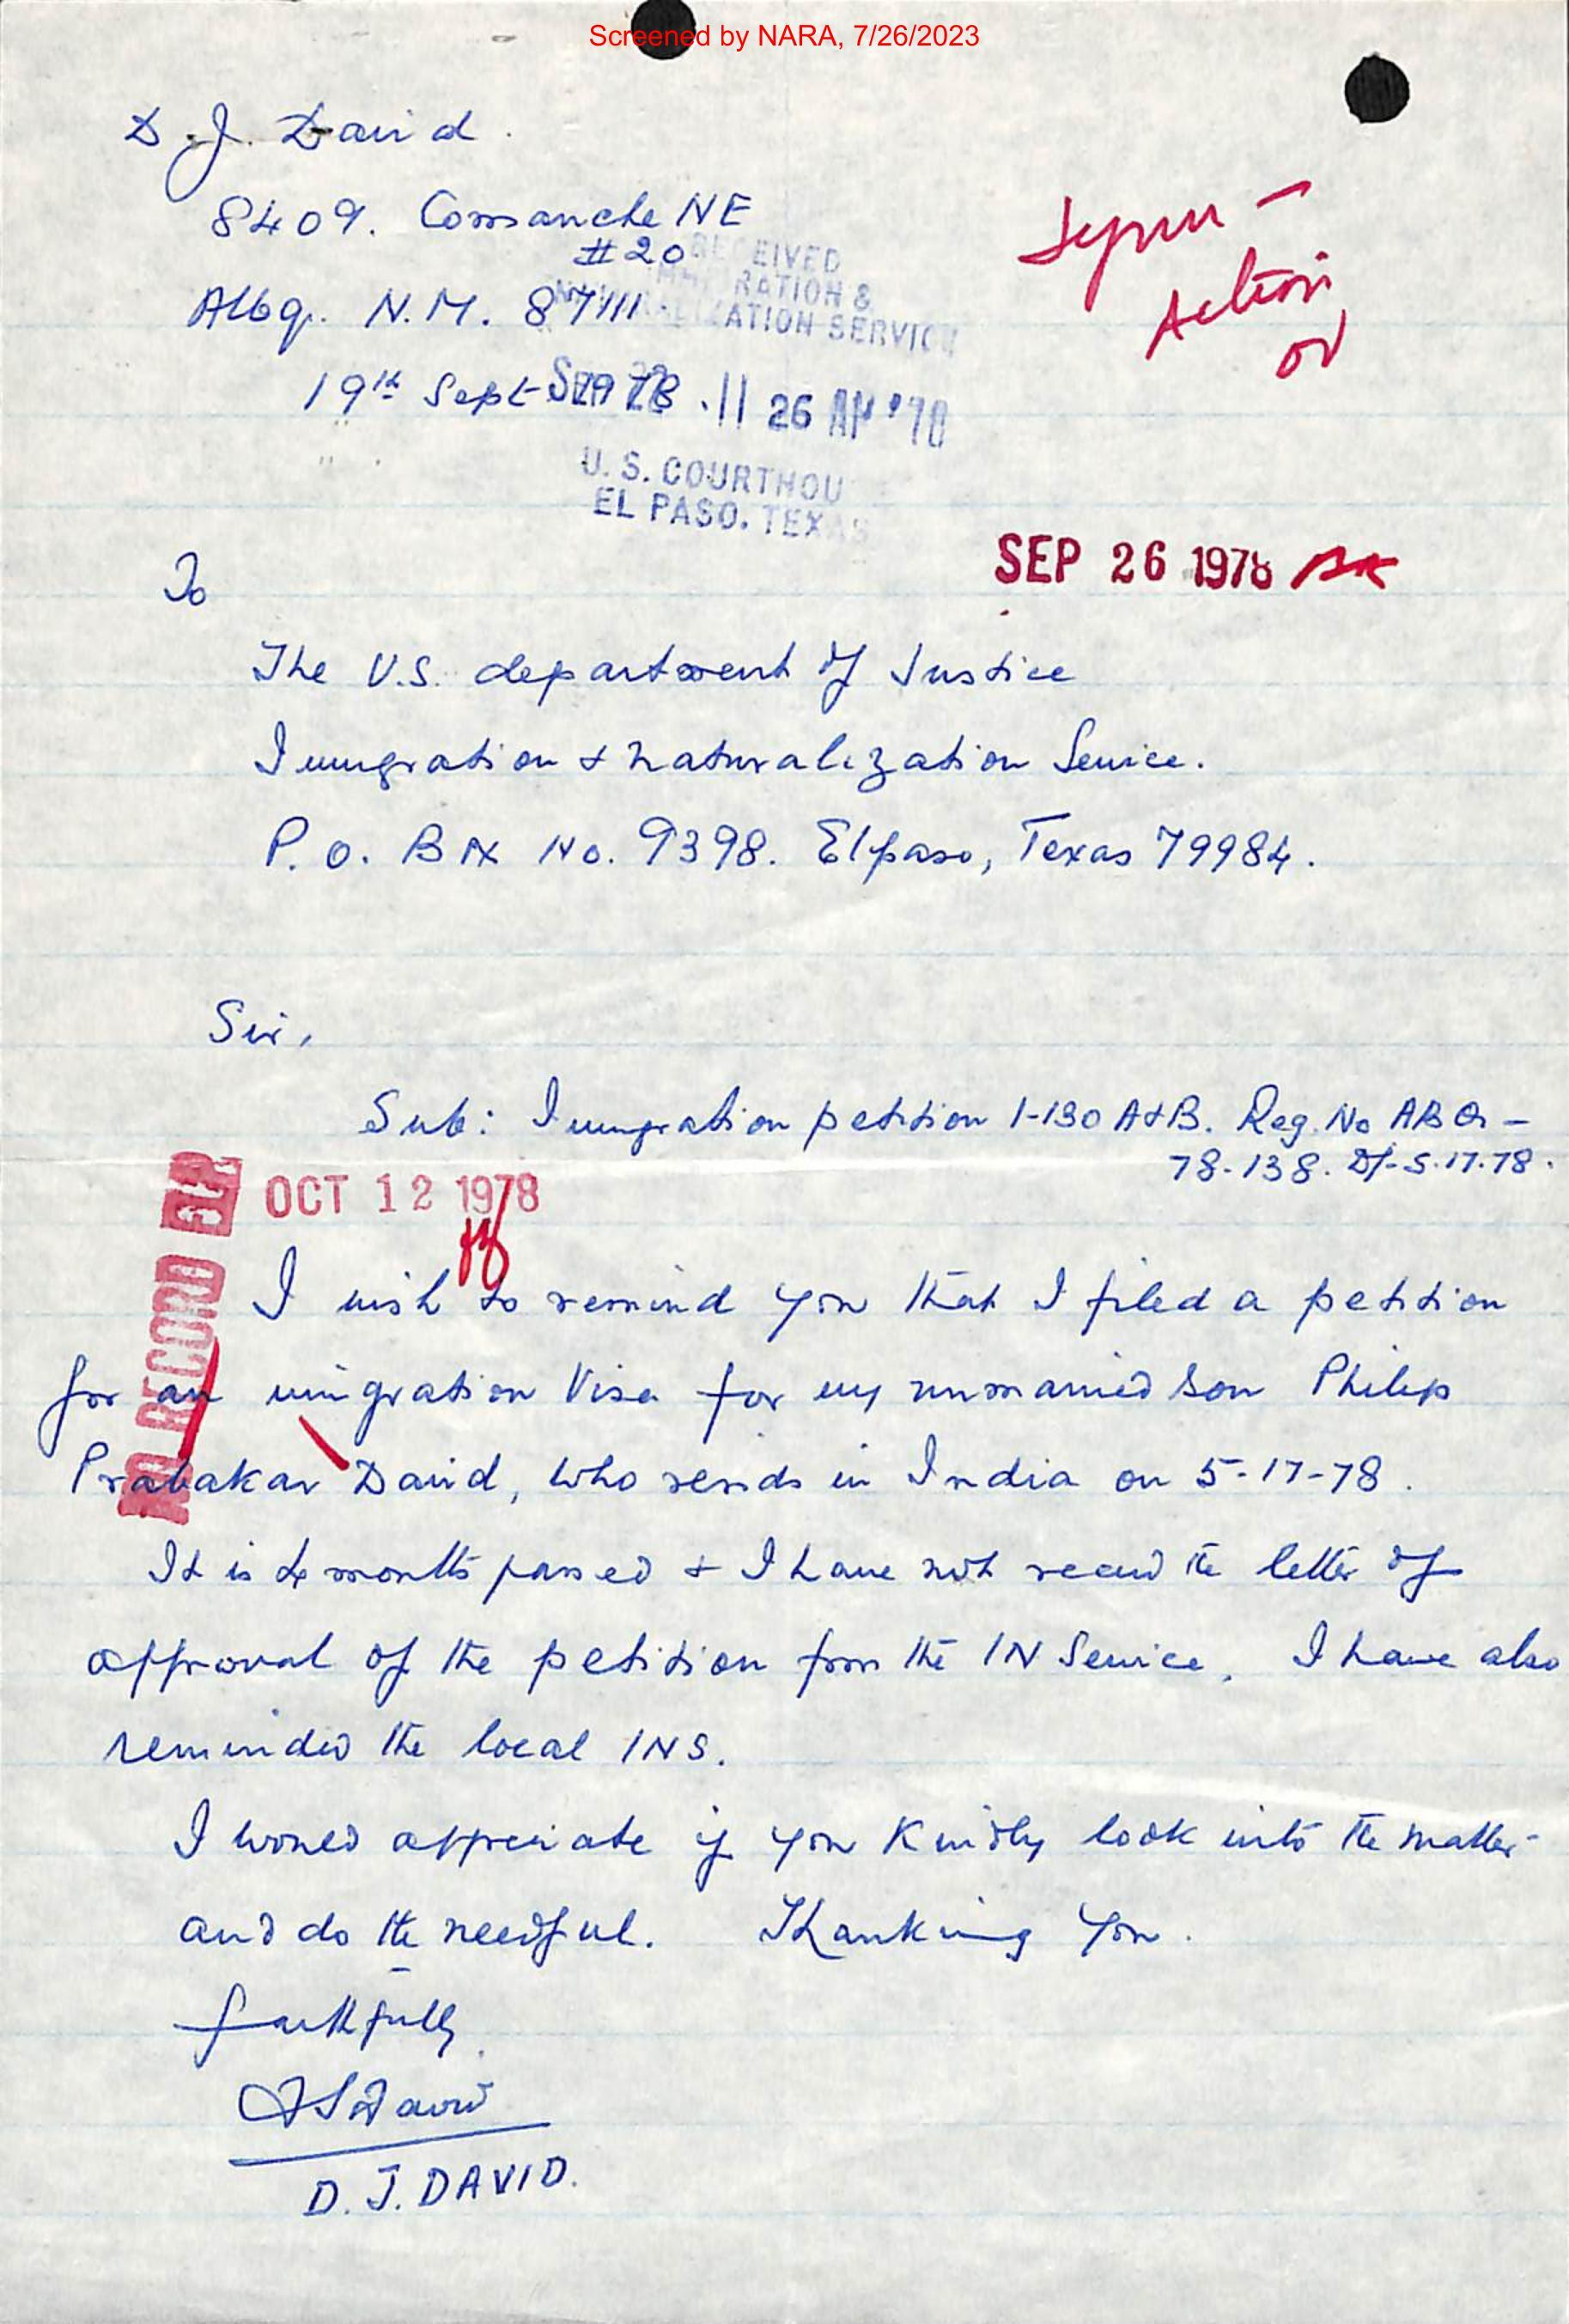 Screened by NARA, 7/26/2023
D. J. David.
8409. Comanche NE
#20
Albq. N.M. 87111.
RECEIVED
IMMIGRATION &
NATURALIZATION SERVICE
19th Sept 1978.
SEP 22 11 26 AM '78
U. S. COURTHOU
EL PASO. TEXAS
Action
SEP 26 1978
To
The U.S. department of Justice
Immigration & naturalization Service.
P. O. Box No. 9398. Elpaso, Texas 79984.
Sir,
Sub: Immigration petition I-130 A&B. Reg. No ABQ-
78-138. Dt-5.17.78.
OCT 12 1978
I wish to remind you that I filed a petition
for an imigration Visa for my unmarried son Philip
Prabakar David, who resids in India on 5-17-78.
It is 4 months passed & I have not received the letter of
approval of the petition from the IN Service. I have also
reminded the local INS.
I would appreciate if you kindly look into the matter
and do the needful. Thanking you.
faithfully
D J David
D. J. DAVID.